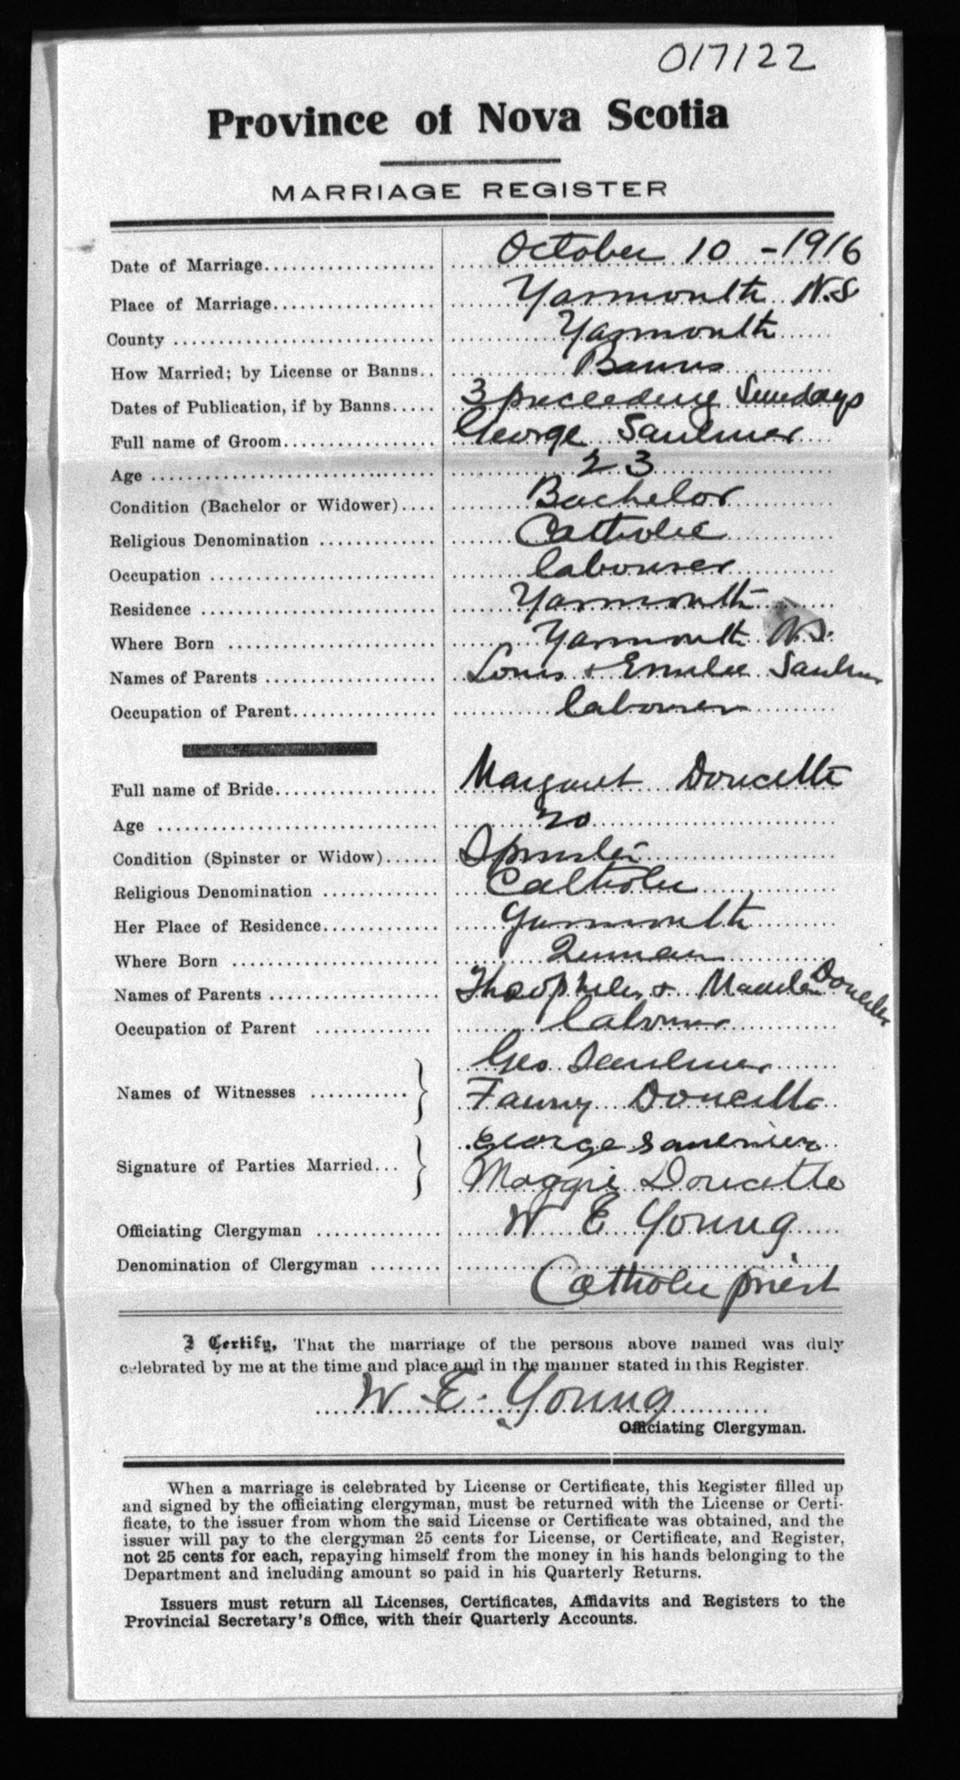 017122
Province of Nova Scotia
MARRIAGE REGISTER
Date of Marriage.................... October 10 - 1916
Place of Marriage................... Yarmouth N.S
County .............................. Yarmouth
How Married; by License or Banns.. Banns
Dates of Publication, if by Banns..... 3 preceeding Sundays
Full name of Groom.................. George Saulnier
Age ................................. 23
Condition (Bachelor or Widower).... Bachelor
Religious Denomination .............. Catholic
Occupation .......................... labourer
Residence ........................... Yarmouth
Where Born ........................ Yarmouth N.S.
Names of Parents .................... Louis & Emilee Saulnier
Occupation of Parent................. labourer
Full name of Bride................... Margaret Doucette
Age ................................. 20
Condition (Spinster or Widow)...... Spinster
Religious Denomination .............. Catholic
Her Place of Residence............. Yarmouth
Where Born ........................ Quinan
Names of Parents .................... & Doucette
Occupation of Parent .............. labourer
Names of Witnesses ........... } Geo Saulnier
Fanny Doucette
Signature of Parties Married... } George Saulnier
Maggie Doucette
Officiating Clergyman ............... W E Young
Denomination of Clergyman ........ Catholic priest
I Certify, That the marriage of the persons above named was duly
celebrated by me at the time and place and in the manner stated in this Register.
W. E. Young
Officiating Clergyman.
When a marriage is celebrated by License or Certificate, this Register filled up
and signed by the officiating clergyman, must be returned with the License or Certi-
ficate, to the issuer from whom the said License or Certificate was obtained, and the
issuer will pay to the clergyman 25 cents for License, or Certificate, and Register,
not 25 cents for each, repaying himself from the money in his hands belonging to the
Department and including amount so paid in his Quarterly Returns.
Issuers must return all Licenses, Certificates, Affidavits and Registers to the
Provincial Secretary's Office, with their Quarterly Accounts.